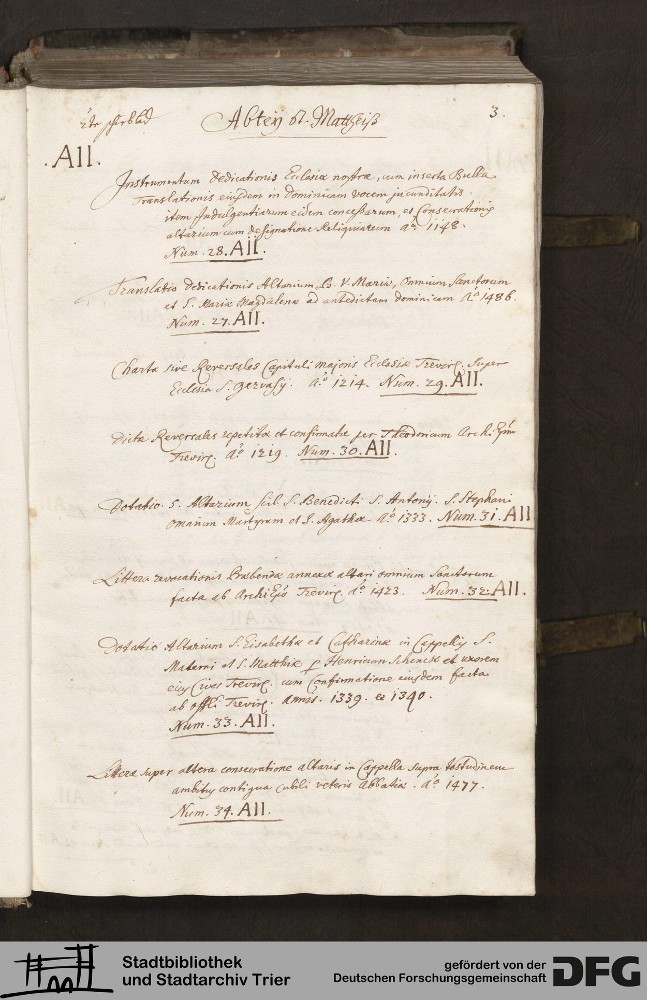 2te schublad
Abtey St. Mattheiß
3.
.All.
Instrumentum Dedicationis Ecclesiæ nostræ, cum inserta Bulla
Translationis eiusdem in Dominicam vocem jucunditatis.
item Indulgentiarum eidem concessarum, et Consecrationis
altarium cum designatione Reliquiarum aō 1148.
Num. 28. All.
Translatio Dedicationis Altarium B. V. Mariæ, Omnium Sanctorum
et S. Mariæ Magdalenæ ad antedictam Dominicam Aō 1486.
Num. 27. All.
Charta sive Reversales Capituli majoris Ecclesiæ Trevir. super
Ecclesia S. Gervasij. Aō 1214. Num. 29. All.
Dictæ Reversales repetitæ et confirmatæ per Theodoricum Archi. Epūm
Trevir. Aō 1219. Num. 30. All.
Dotatio 5. Altarium scil. S. Benedicti S. Antonij. S. Stephani
omnium Martyrum et S. Agathæ Aō 1333. Num. 31. All
Littera revocationis Præbendæ annexæ altari omnium Sanctorum
facta ab ArchiEpō Trevir. Aō 1423. Num. 32. All.
Dotatio Altarium S. Elisabethæ et Catharinæ in Cappellis S.
Materni et S. Matthiæ p Henricum Schenck et uxorem
eius Cives Trevir. cum Confirmatione eiusdem facta
ab offli Trevir. annis. 1339. & 1340.
Num. 33. All.
Littera super altera consecratione altaris in Cappella supra testudinem
ambitus contigua cubili veteris Abbatiæ. Aō 1477.
Num. 34. All.
Stadtbibliothek
und Stadtarchiv Trier
gefördert von der
Deutschen Forschungsgemeinschaft
DFG